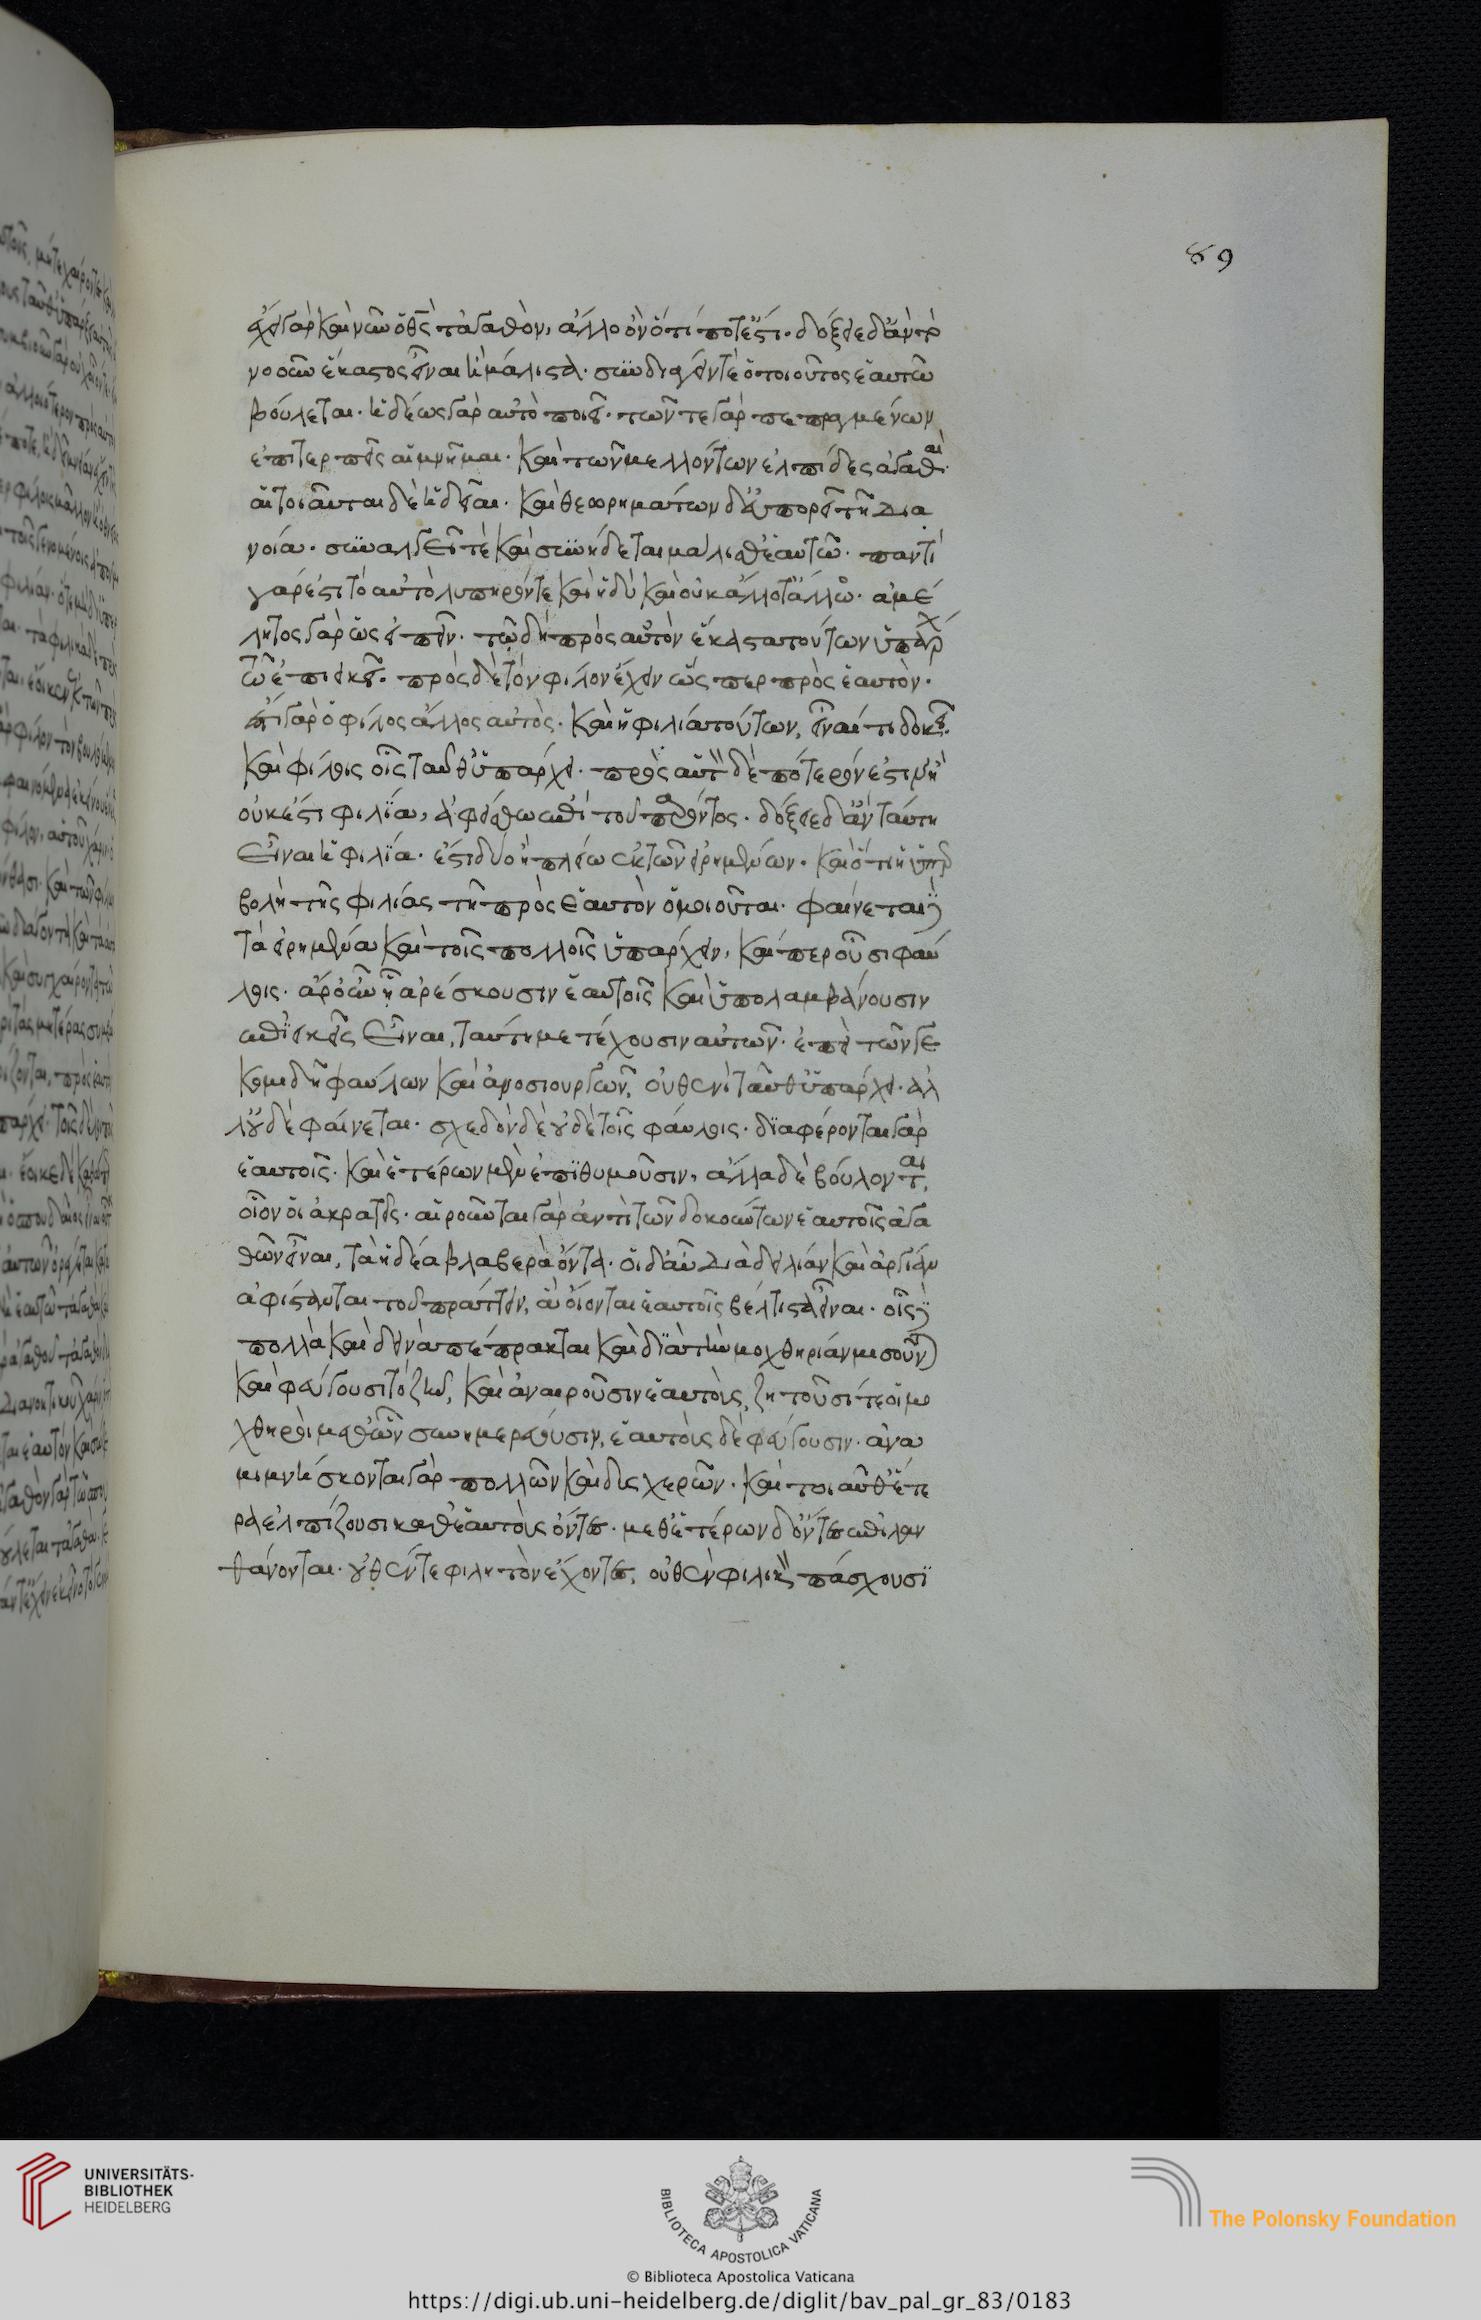 ἔχει γὰρ καὶ νῦν ὁ θεὸς τἀγαθὸν, ἀλλ᾽ ὃν ὅτί ποτ᾽ ἔστί. δόξειε δ᾽ ἂν τὸ
νοοῦν ἕκαστος εἶναι ἢ μάλιστα. συνδιάγειν τὲ ὁ τοιοῦτος ἑαυτῶ
βούλεται. ἡδέως γὰρ αὐτὸ ποιεῖ. τῶν τε γὰρ πεπραγμένων
ἐπιτερπεῖς αἱ μνῆμαι. καὶ τῶν μελλόντων ἐλπίδες ἀγαθαὶ.
αἱ τοιαῦται δὲ ἡδεῖαι. καὶ θεωρημάτων δ᾽ εὐπορεῖ τῆ δια
νοία. συναλγεῖ τὲ καὶ συνήδεται μάλισθ᾽ ἑαυτῶ. παντὶ
γάρ ἐστι τὸ αὐτὸ λυπηρόν τε καὶ ἡδὺ καὶ οὐκ ἄλλοτ᾽ ἄλλο. ἀμε
λητος γὰρ ὡς εἰπεῖν. τῶ δὴ πρὸς αὑτὸν ἕκαστα τούτων ὑπάρχ
τῶ ἐπιεικεῖ. πρὸς δὲ τὸν φίλον ἔχειν ὥς περ πρὸς ἑαυτὸν.
ἐστὶ γὰρ ὁ φίλος ἄλλος αὐτὸς. καὶ ἡ φιλία τούτων, εἶναί τι δοκεῖ.
καὶ φίλοις οἷς ταῦθ᾽ ὑπάρχει. πρὸς αὑτὸν δὲ πότερόν ἐστιν ἢ
οὐκ ἔστι φιλία, ἀφείσθω ἐπὶ τοῦ παρόντος. δόξειε δ᾽ ἂν ταύτη
εἶναι ἡ φιλία. ἐστὶ δύο ἢ πλείω ἐκ τῶν εἰρημένων. καὶ ὅτι ἡ ὑπερ
βολὴ τῆς φιλίας τῆ πρὸς ἑαυτὸν ὁμοιοῦται. φαίνεται δὲ
τὰ εἰρημένα καὶ τοῖς πολλοῖς ὑπάρχειν, καί περ οὖσι φαύ
λοις. ἆρ᾽ οὖν ᾗ ἀρέσκουσιν ἑαυτοῖς καὶ ὑπολαμβάνουσιν
ἐπιεικεῖς εἶναι, ταύτη μετέχουσιν αὐτῶν. ἐπεὶ τῶν γε
κομιδῆ φαύλων καὶ ἀνοσιουργῶν, οὐθενὶ ταῦθ᾽ ὑπάρχει. ἀλ
λ᾽ οὐδὲ φαίνεται. σχεδὸν δὲ οὐδὲ τοῖς φαύλοις. διαφέρονται γὰρ
ἑαυτοῖς. καὶ ἑτέρων μὲν ἐπιθυμοῦσιν, ἄλλα δὲ βούλονται,
οἷον οἱ ἀκρατεῖς. αἱροῦνται γὰρ ἀντὶ τῶν δοκούντων ἑαυτοῖς ἀγα
θῶν εἶναι, τὰ ἡδέα βλαβερὰ ὄντα. οἱ δ᾽ αὖ διὰ δειλίαν καὶ ἀργίαν
ἀφίστανται τοῦ πράττειν, ἃ οἴονται ἑαυτοῖς βέλτιστα εἶναι. οἷς δὲ
πολλὰ καὶ δεινὰ πέπρακται καὶ διὰ τὴν μοχθηρίαν μισοῦν)
καὶ φεύγουσι τὸ ζῆν, καὶ ἀναιροῦσιν ἑαυτοὺς, ζητοῦσί τε οἱ μο
χθηροὶ μεθ᾽ ὧν συνημερεύσιν, ἑαυτοὺς δὲ φεύγουσιν. ἀνα
μιμνήσκονται γὰρ πολλῶν καὶ δυσχερῶν. καὶ τοιαῦθ᾽ ἕτε
ρα ἐλπίζουσι καθ᾽ ἑαυτοὺς ὄντες. μεθ᾽ ἑτέρων δ᾽ ὄντες ἐπιλαν
θάνονται. οὐθέν τε φιλητὸν ἔχοντες, οὐθὲν φιλικὸν πάσχουσι
89
UNIVERSITÄTS-
BIBLIOTHEK
HEIDELBERG
BIBLIOTECA APOSTOLICA VATICANA
The Polonsky Foundation
© Biblioteca Apostolica Vaticana
https://digi.ub.uni-heidelberg.de/diglit/bav_pal_gr_83/0183